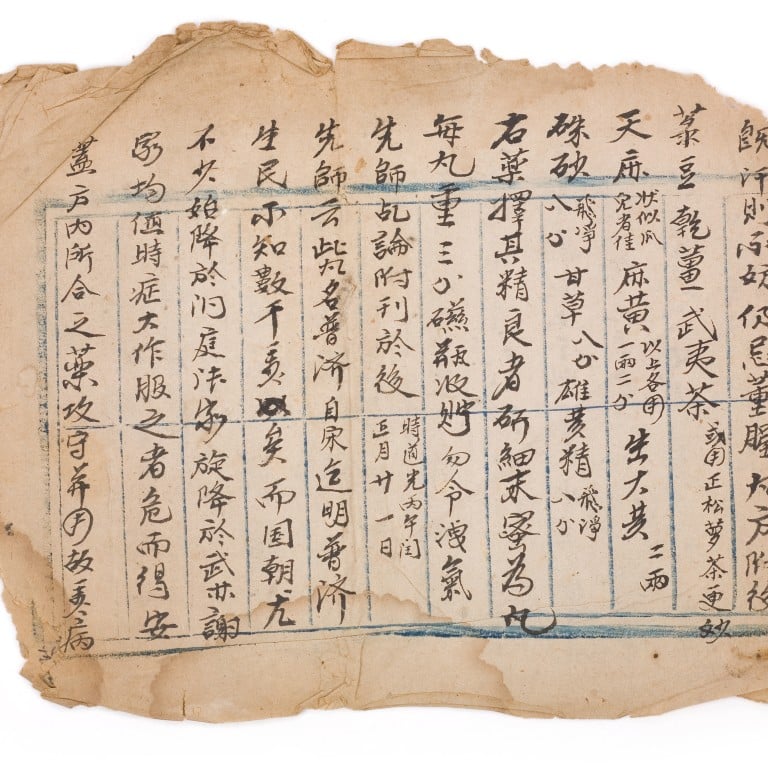 既汗則不妨仍忌葷腥大方附後
菉豆 乾薑 武夷茶 或用正松萝茶更妙
天麻 狀似瓜兒者佳 麻黄 以上各用一兩二分 生大黄 二兩
硃砂 飛凈八分 甘草 八分 雄黄精 飛淨八分
右藥擇其精良者研細末蜜為丸
每丸重三分礠瓶收貯勿令洩氣
先師乩論附刊於後 時道光丙午閏五月廿一日
先師云此丸名普济自宋迄明普济
生民不知數千百矣而国朝尤
不少始降於洞庭法家旋降於武林謝
家均值時症大作服之者危而得安
蓋方内所合之藥攻守并用故百病